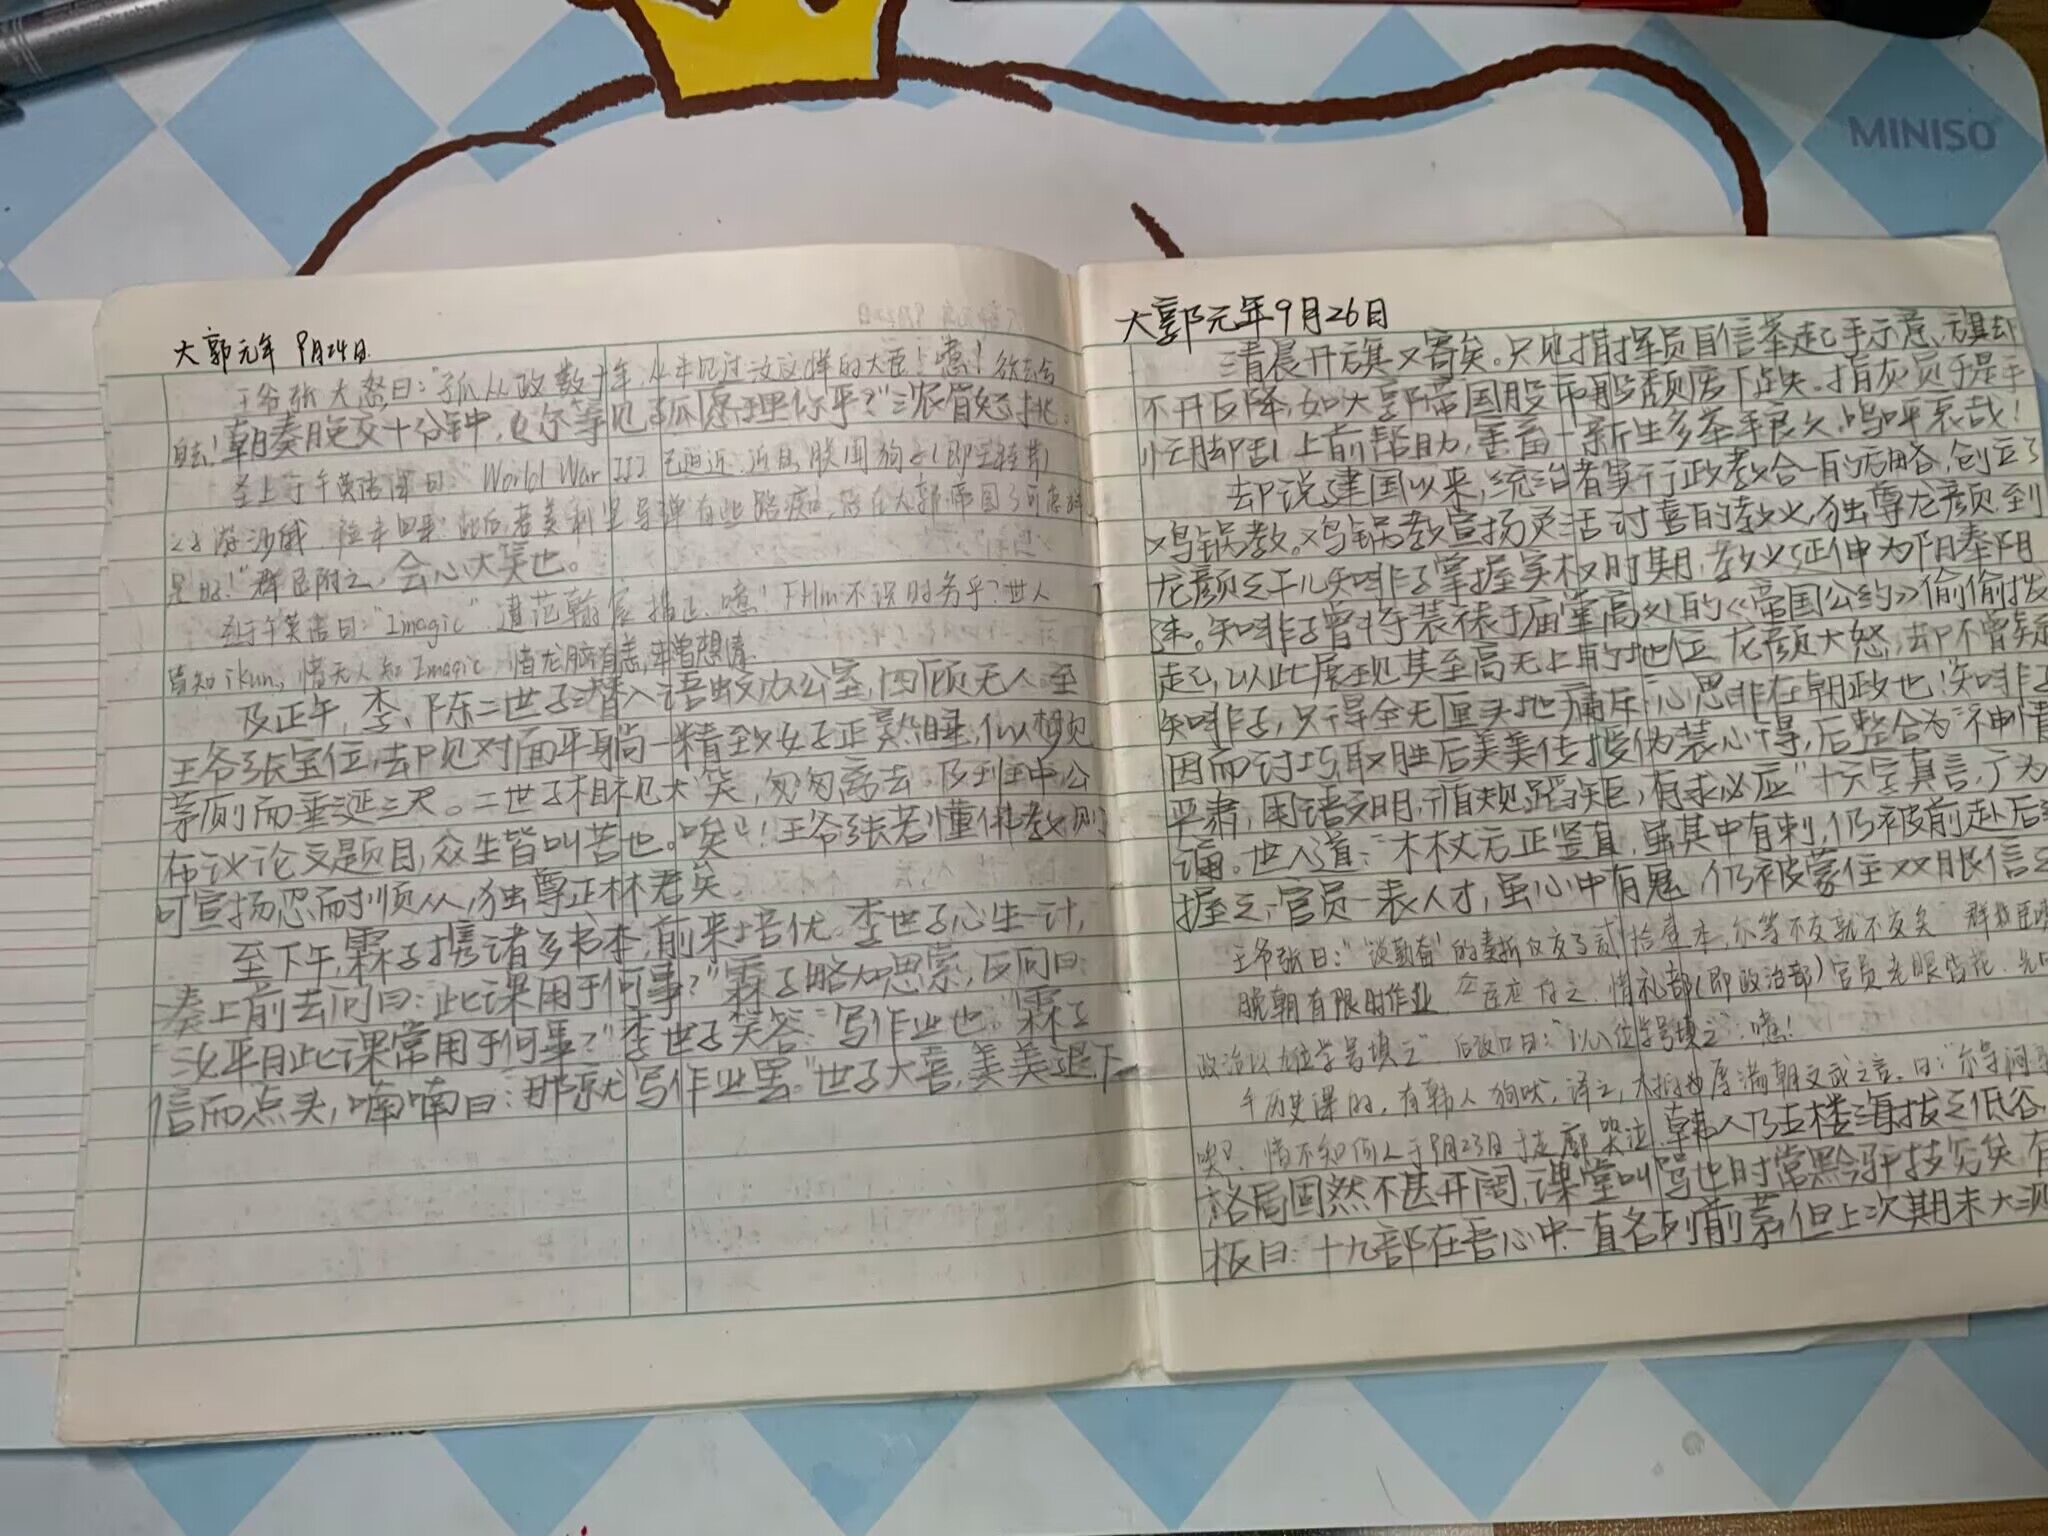 MINISO
大郭元年 9月24日
王爷张大怒曰："孤从政数十年,从未见过汝这样的大臣！噫！
自去！朝奏晚交十分钟,
圣上于午英语课曰："World War III 已迫近,近日,朕闻狗子(即
是的！"群臣附之,会心大笑也。
圣于午英语曰："Imagic".遣范翰宸指正.噫！ 不识时务乎？世人
皆知ikun,惜无人知Imagic,惜龙脑有恙,
及正午,李、陈二世子潜入语蛟办公室,四顾无人至
王爷张宝位,却见对面平躺一精致女子正熟睡,似梦见
茅厕而垂涎三尺。二世子相视大笑,匆匆离去。及到班中,公
布议论文题目,众生皆叫苦也。唉！王爷张若懂佛教,则
可宣扬忍耐顺从,独尊正林君矣。
至下午,霖子携诸多书本,前来培优。李世子心生一计,
奏上前去问曰：此课用于何事？"霖子略加思索,反问曰：
汝平日此课常用于何事？"李世子笑答："写作业也。"霖子
信而点头,喃喃曰：那就写作业罢。"世子大喜,美美退下
大郭元年9月26日
清晨升旗又寄矣。只见指挥员自信举起手示意,旗却
不升反降,如大郭帝国股市般颓废下跌。指灰员于是手
忙脚乱上前帮助,害畜一新生多举手良久,呜呼哀哉！
却说建国以来,统治者事行政教合一的策略,创立了
鸡锅教。鸡锅教宣扬灵活讨喜的教义,独尊龙颜。到
龙颜之干儿知啡子掌握实权的时期,教义延伸为阳奉阴
违。知啡子曾将装裱于庙堂高处的《帝国公约》偷偷拔
起,以此展现其至高无上的地位。龙颜大怒,却不曾疑
知啡子,只得全无厘头地痛斥："心思非在朝政也！知啡子
因而讨巧取胜后美美传授伪装心得,后整合为"神情
严肃,用语文明,循规蹈矩,有求必应"十六字真言,广为
诵。世人道："木杖方正竖直,虽其中有刺,仍被前赴后
握之；官员一表人才,虽心中有鬼,仍被蒙住双眼信之
王爷张曰："'谈勤奋'的奏折仅交了贰拾壹本,尔等不交就不交矣"
晚朝有限时作业,众臣应付之,惜礼部(即政治部)官员老眼昏花,
政治以九位学号填之" 后改口曰："以八位学号填之".噫！
午历史课时,有韩人狗吠,译之,
惜不知何人于9月23日于走廊哭泣.韩人乃五楼海拔之低谷,
格局固然不甚开阔,课堂叫骂也时常黔驴技穷矣
板曰：十九部在吾心中一直名列前茅,但上次期末大测